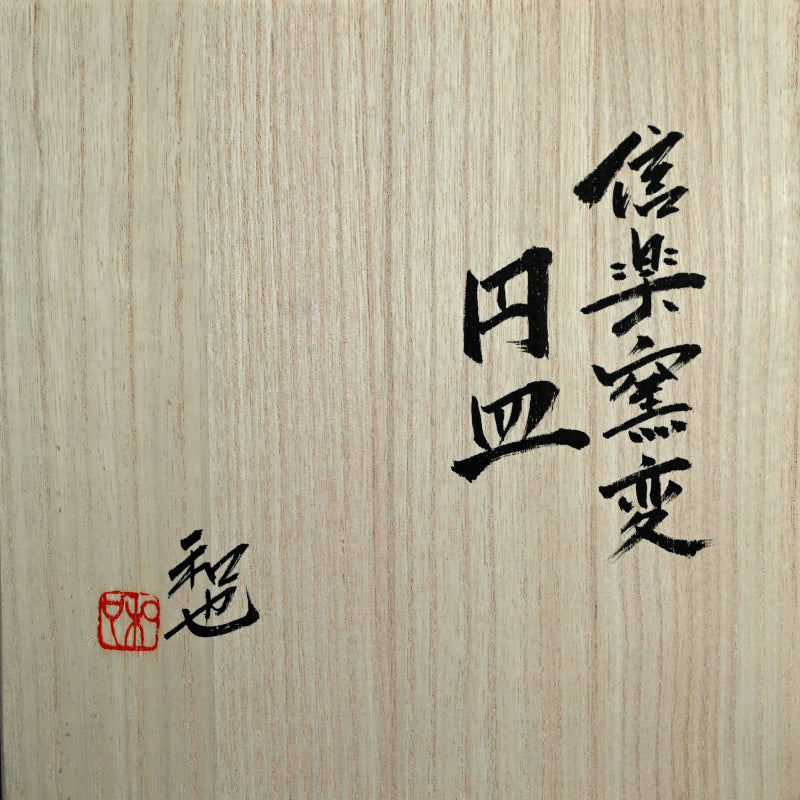 信楽窯変
円皿
和也